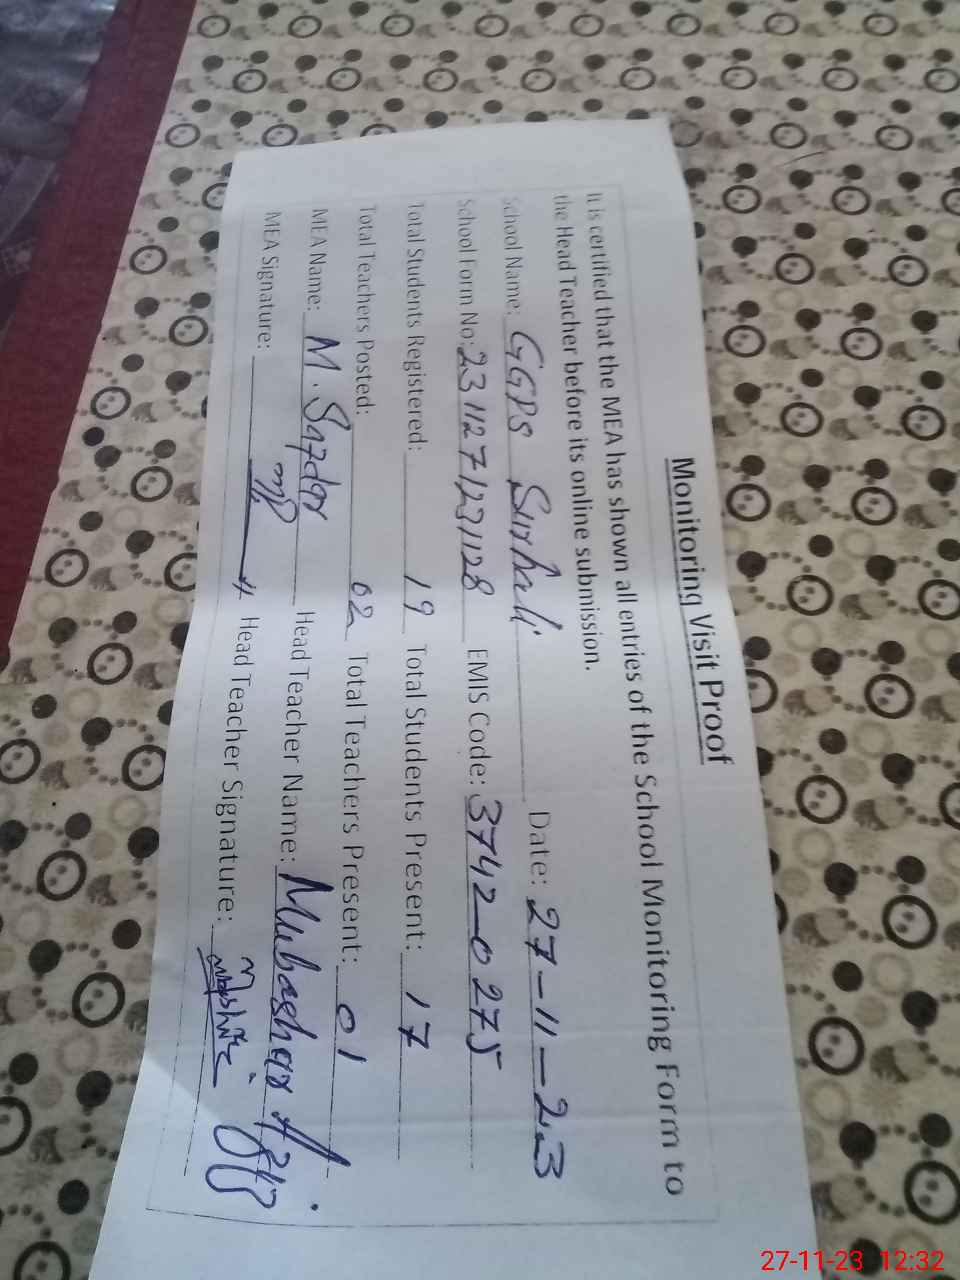 Monitoring Visit Proof
It is certified that the MEA has shown all entries of the School Monitoring Form to
the Head Teacher before its online submission.
School Name: GGPS Sirhali Date: 27-11-23
School Form No: EMIS Code: 37420275
Total Students Registered: 19 Total Students Present: 17
Total Teachers Posted: 02 Total Teachers Present: 01
MEA Name: M. Safdar Head Teacher Name: Mubashar
MEA Signature: Head Teacher Signature:
27-11-23 12:32